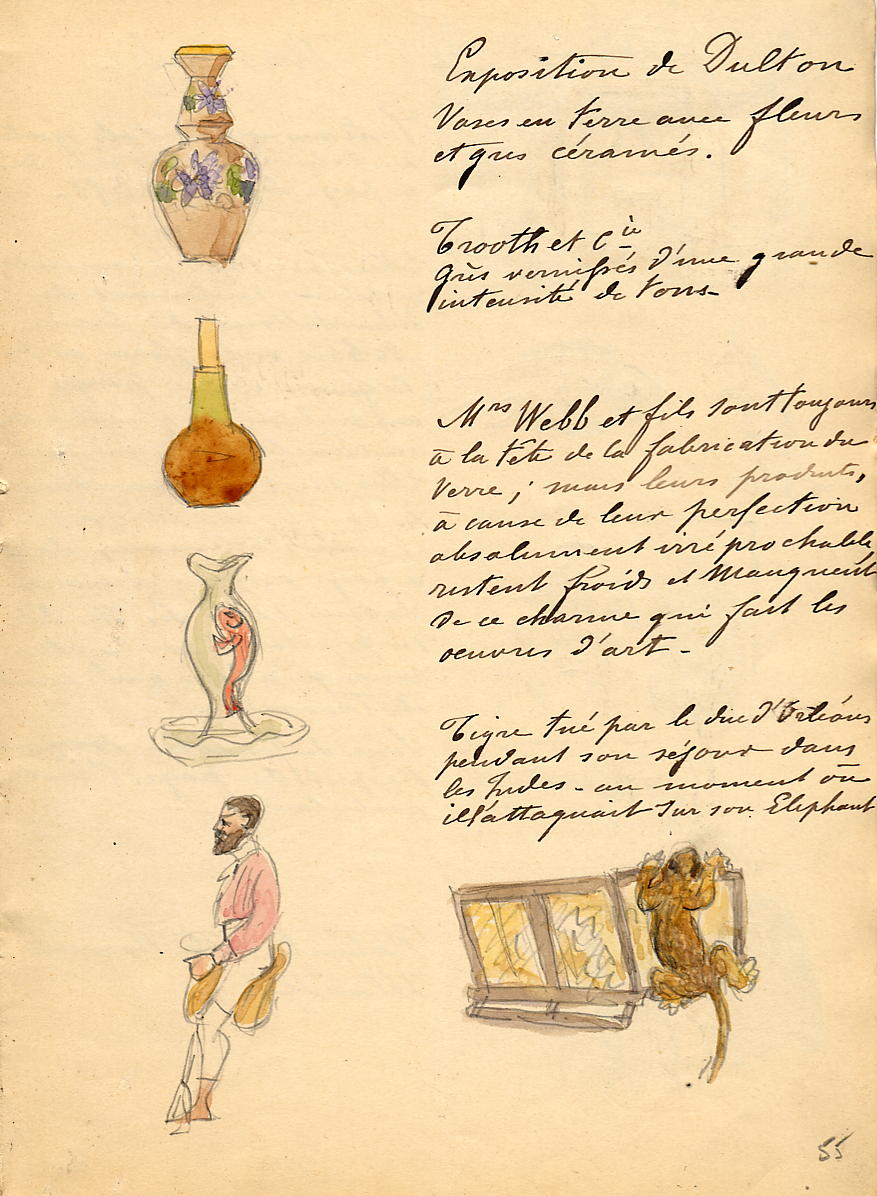 Exposition de Dulton
Vases en terre avec fleurs
et gres céramés.
Trooth et Cie
Grès vernissés d'une grande
intensité de tons-
Mrs Webb et fils sont toujours
à la tête de la fabrication du
verre ; mais leurs produits,
à cause de leur perfection
absolument irréprochable,
restent froids et manquent
de ce charme qui fait les
oeuvres d'art -
Tigre tué par le duc d'Orléans
pendant son séjour dans
les Indes - au moment où
il l'attaquait sur son Eléphant
55